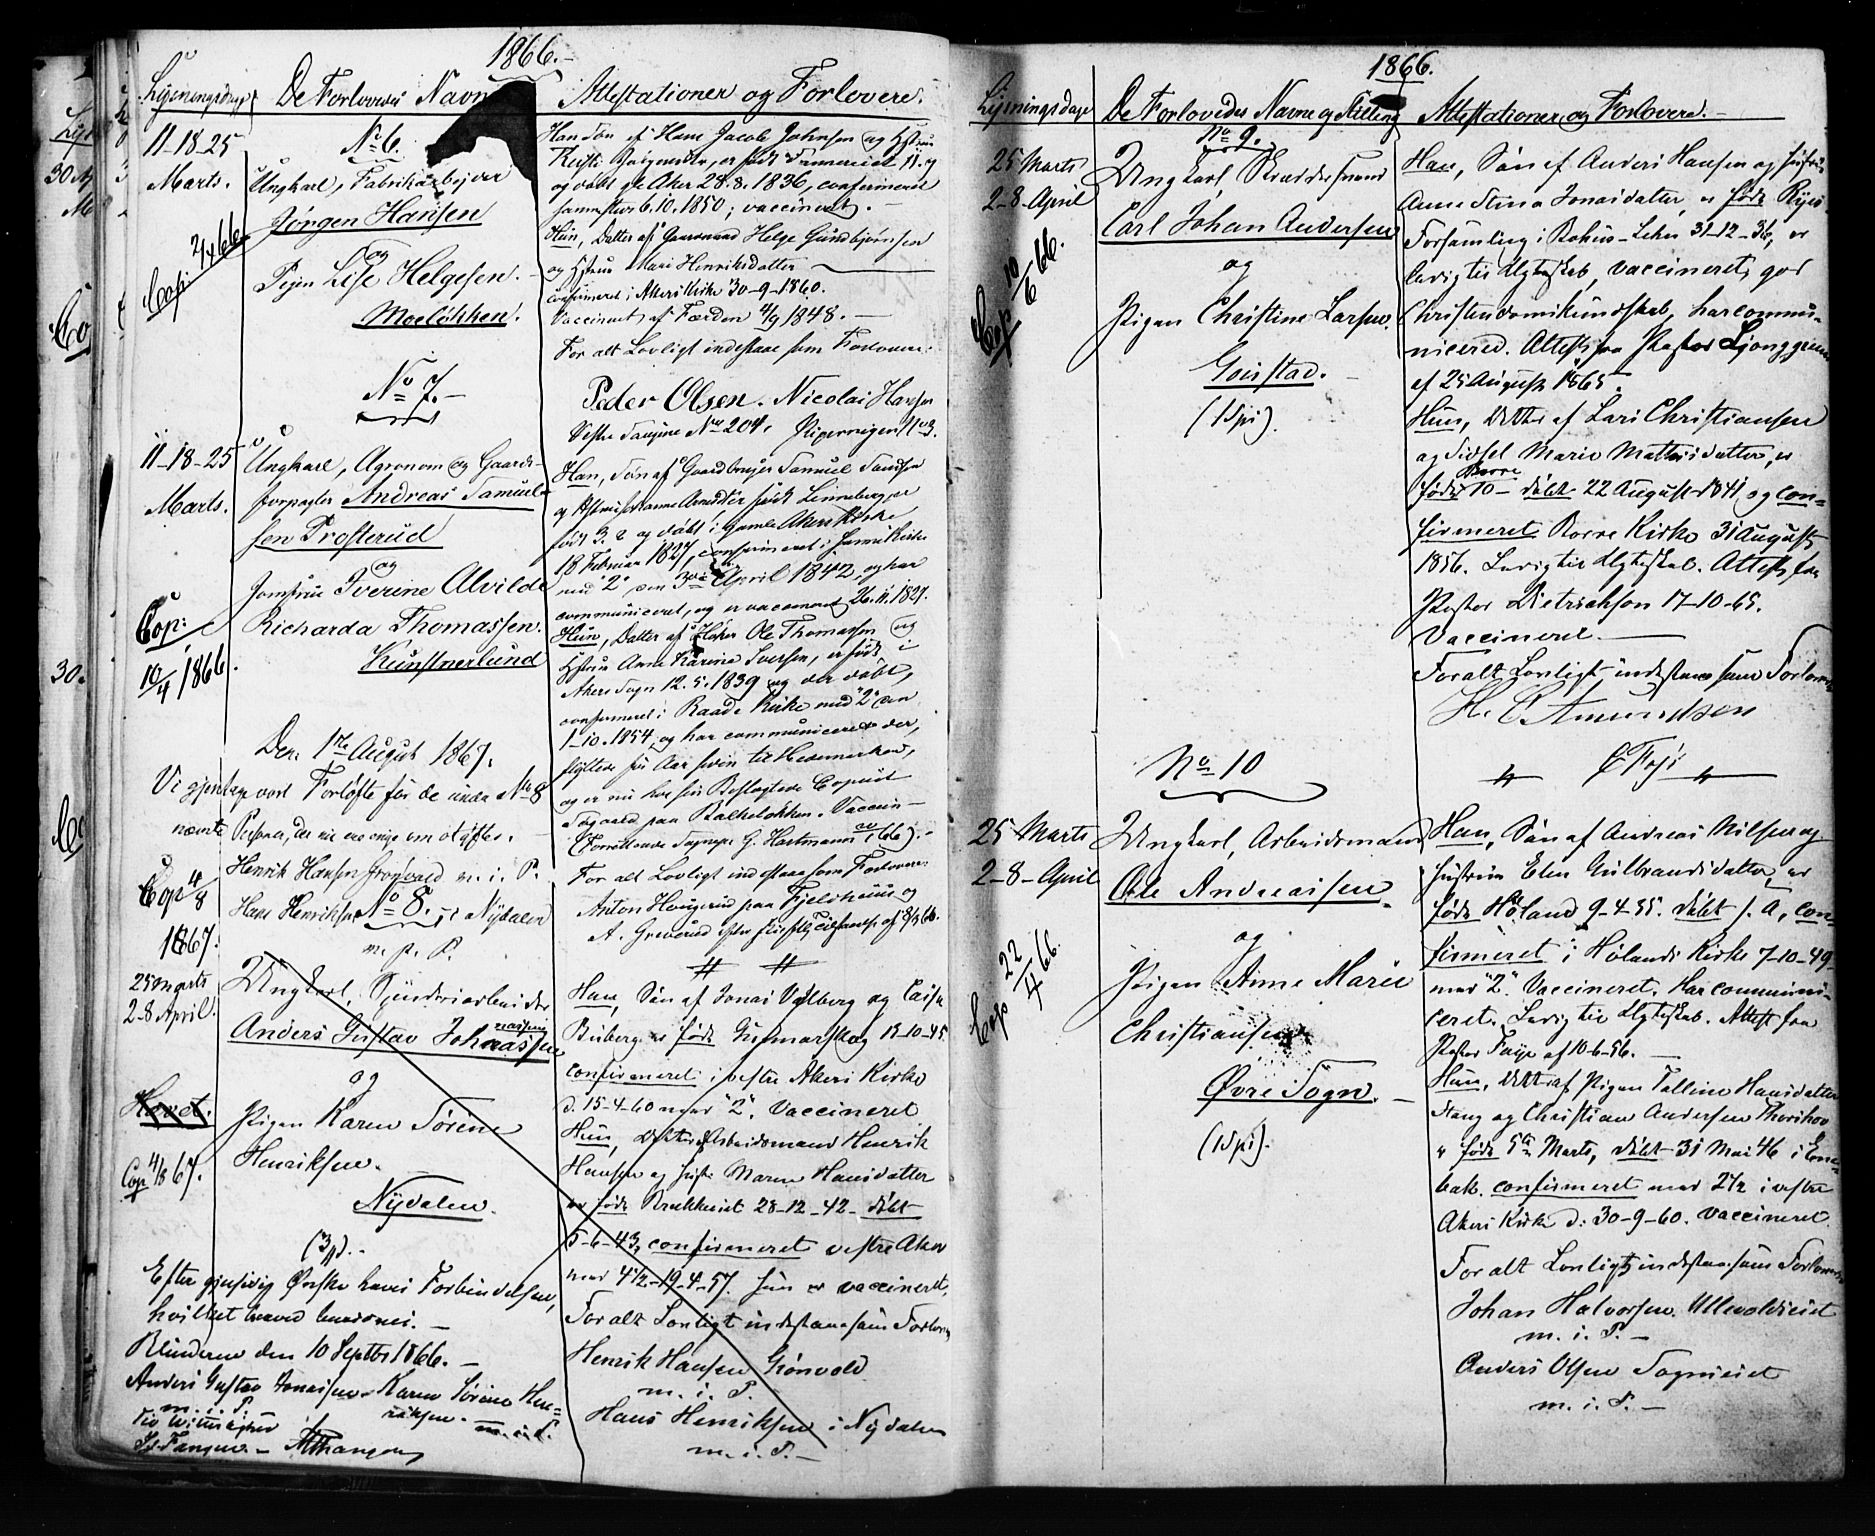 1866.
Lysningsdage De Forlovedes Navne Attestationer og Forlovere.
11-18-25
Marts.
No 6.
Ungkarl, Fabrikarbejder
Jørgen Hansen
og
Pigen Lise Helgesen.
Moeløkken.
Cop:
Han Søn af Hans Jacob Johnsen og Hstru
er født
og døbt gl. Aker 28.8.1836, confirmeret
sammesteds 6.10.1850; vaccineret.
Hun, Datter af Gaardmand Helge Gundbjørnsen
og Hstru Mari Henriksdatter
confirmeret i Akers Kirke 30-9-1860.
Vaccineret af Færden 4/9 1848.
For alt Lovligt indestaae som Forlovere:
Peder Olsen. Nicolai Hansen
No 204.
No 7.
11-18-25
Marts.
Ungkarl, Agronom og Gaard-
forpagter Andreas Samuel-
sen Prosterud
og
Jomfrue Iverine Alvilde
Richarda Thomassen.
Kunstnerlund
Cop:
10/4 1866.
Han, Søn af Gaardbruger Samuel
født 3. 2 og døbt i gamle Akers Kirke
18 Februar 1827, confirmeret i samme Kirke
med "2" den 3die April 1842, og har
communiceret, og er vaccineret 26.11.1827.
Hun, Datter af Ole Thomassen og
Hstrue Anne Karine Iversen, er født i
Akers Sogn 12.5.1839 og der døbt,
confirmeret i Raade Kirke med "2" den
1-10.1854, og har communiceret der,
flyttede for Aar siden til Hedemarken,
og er nu hos sin Beslægtede Copiist
paa Balkeløkken. Vaccin-
G. Hartmann
For alt Lovligt indestaae som Forlovere:
Anton Heugerud paa Fjeldhuus og
A. Greverud
Den 1ste August 1867.
Vi gjentage vort Forløfte for de under No 8
nævnte Personer, der nu ere enige om at giftes.
Henrik Hansen Grønvold m. i. P.
Hans Henriksen i Nydalen
m. p. P.
Cop 4/8
1867.
No 8.
25 Marts
2-8 April.
Ungkarl, Spinderiarbeider
Anders Gustav Johnassen
og
Pigen Karen Sørine
Henriksen.
Nydalen.
(3 Spd).
Hævet.
Cop 4/8 67.
Han, Søn af Jonas Wilberg og Cajsa
Buberg er født Gunnarskog 13-10-45
confirmeret i vestre Akers Kirke
d. 15-4-60 med "2". Vaccineret
Hun, Datter af Arbeidsmand Henrik
Hansen og Hustr. Maren Hansdatter
er født 28-12-42- døbt
5-6-43, confirmeret vestre Aker
med 4½-19-4-57. Hun er vaccineret.
For alt Lovligt indestaae som Forlovere
Henrik Hansen Grønvold
m. i. P.
Hans Henriksen i Nydalen
m. i. P.
Efter gjensidig Ønske hæves Forbindelsen,
hvilket herved bevidnes.
Blindern den 10 Septbr 1866.
Anders Gustav Jonassen Karen Sørine Hen-
m. i. P. riksen. m. i. P.
Til Vitterlighed
1866.
Lysningsdage De Forlovedes Navne og Stilling Attestationer og Forlovere.
No 9.
25 Marts
2-8-April
Ungkarl, Skræddersvend
Carl Johan Andersen
og
Pigen Christine Larsen.
Gaustad.
(1 Spd).
Cop 10/6-66.
Han, Søn af Anders Hansen og Hustru
Anne Stina Jonasdatter, er født
Forsamling i Bohus-Lehn 31-12-36, er
ledig til Ægteskab, vaccineret, god
Christendomskundskab, har commu-
niceret. Attest fra Pastor Ljunggren
af 25 August 1865.
Hun, Datter af Lars Christiansen
og Sidsel Marie Mathisdatter, er
født Borre 10- døbt 22 August 1841, og con-
firmeret Borre Kirke 31 August
1856. Ledig til Ægteskab. Attest fra
Pastor Dietrichson 17-10-65.
Vaccineret.
For alt Lovligt indestaae som Forlovere
H. C. Amundsen
No 10
25 Marts
2-8-April
Ungkarl, Arbeidsmand
Ole Andreassen.
og
Pigen Anne Marie
Christiansen
Øvre Sogn.
(1 Spd).
Cop 22/4 66.
Han, Søn af Andreas Nilsen og
Hustrue Elen Gulbrandsdatter, er
født Høland 9-4-35. døbt s. A, con-
firmeret i Hølands Kirke 7-10-49
med "2". Vaccineret. Har communi-
ceret. Ledig til Ægteskab. Attest fra
Pastor Faye af 10-6-56.
Hun, Datter af Pigen Talline Hansdatter
Stang og Christian Andersen
født 5te Marts, døbt 31 Mai 46 i Ene-
bak. confirmeret med 2½ i vestre
Akers Kirke d. 30-9-60. Vaccineret
For alt Lovligt indestaae som Forlovere
Johan Halvorsen. Ullevoldseiet
m. i. P.
Anders Olsen Sogneiet
m. i. P.